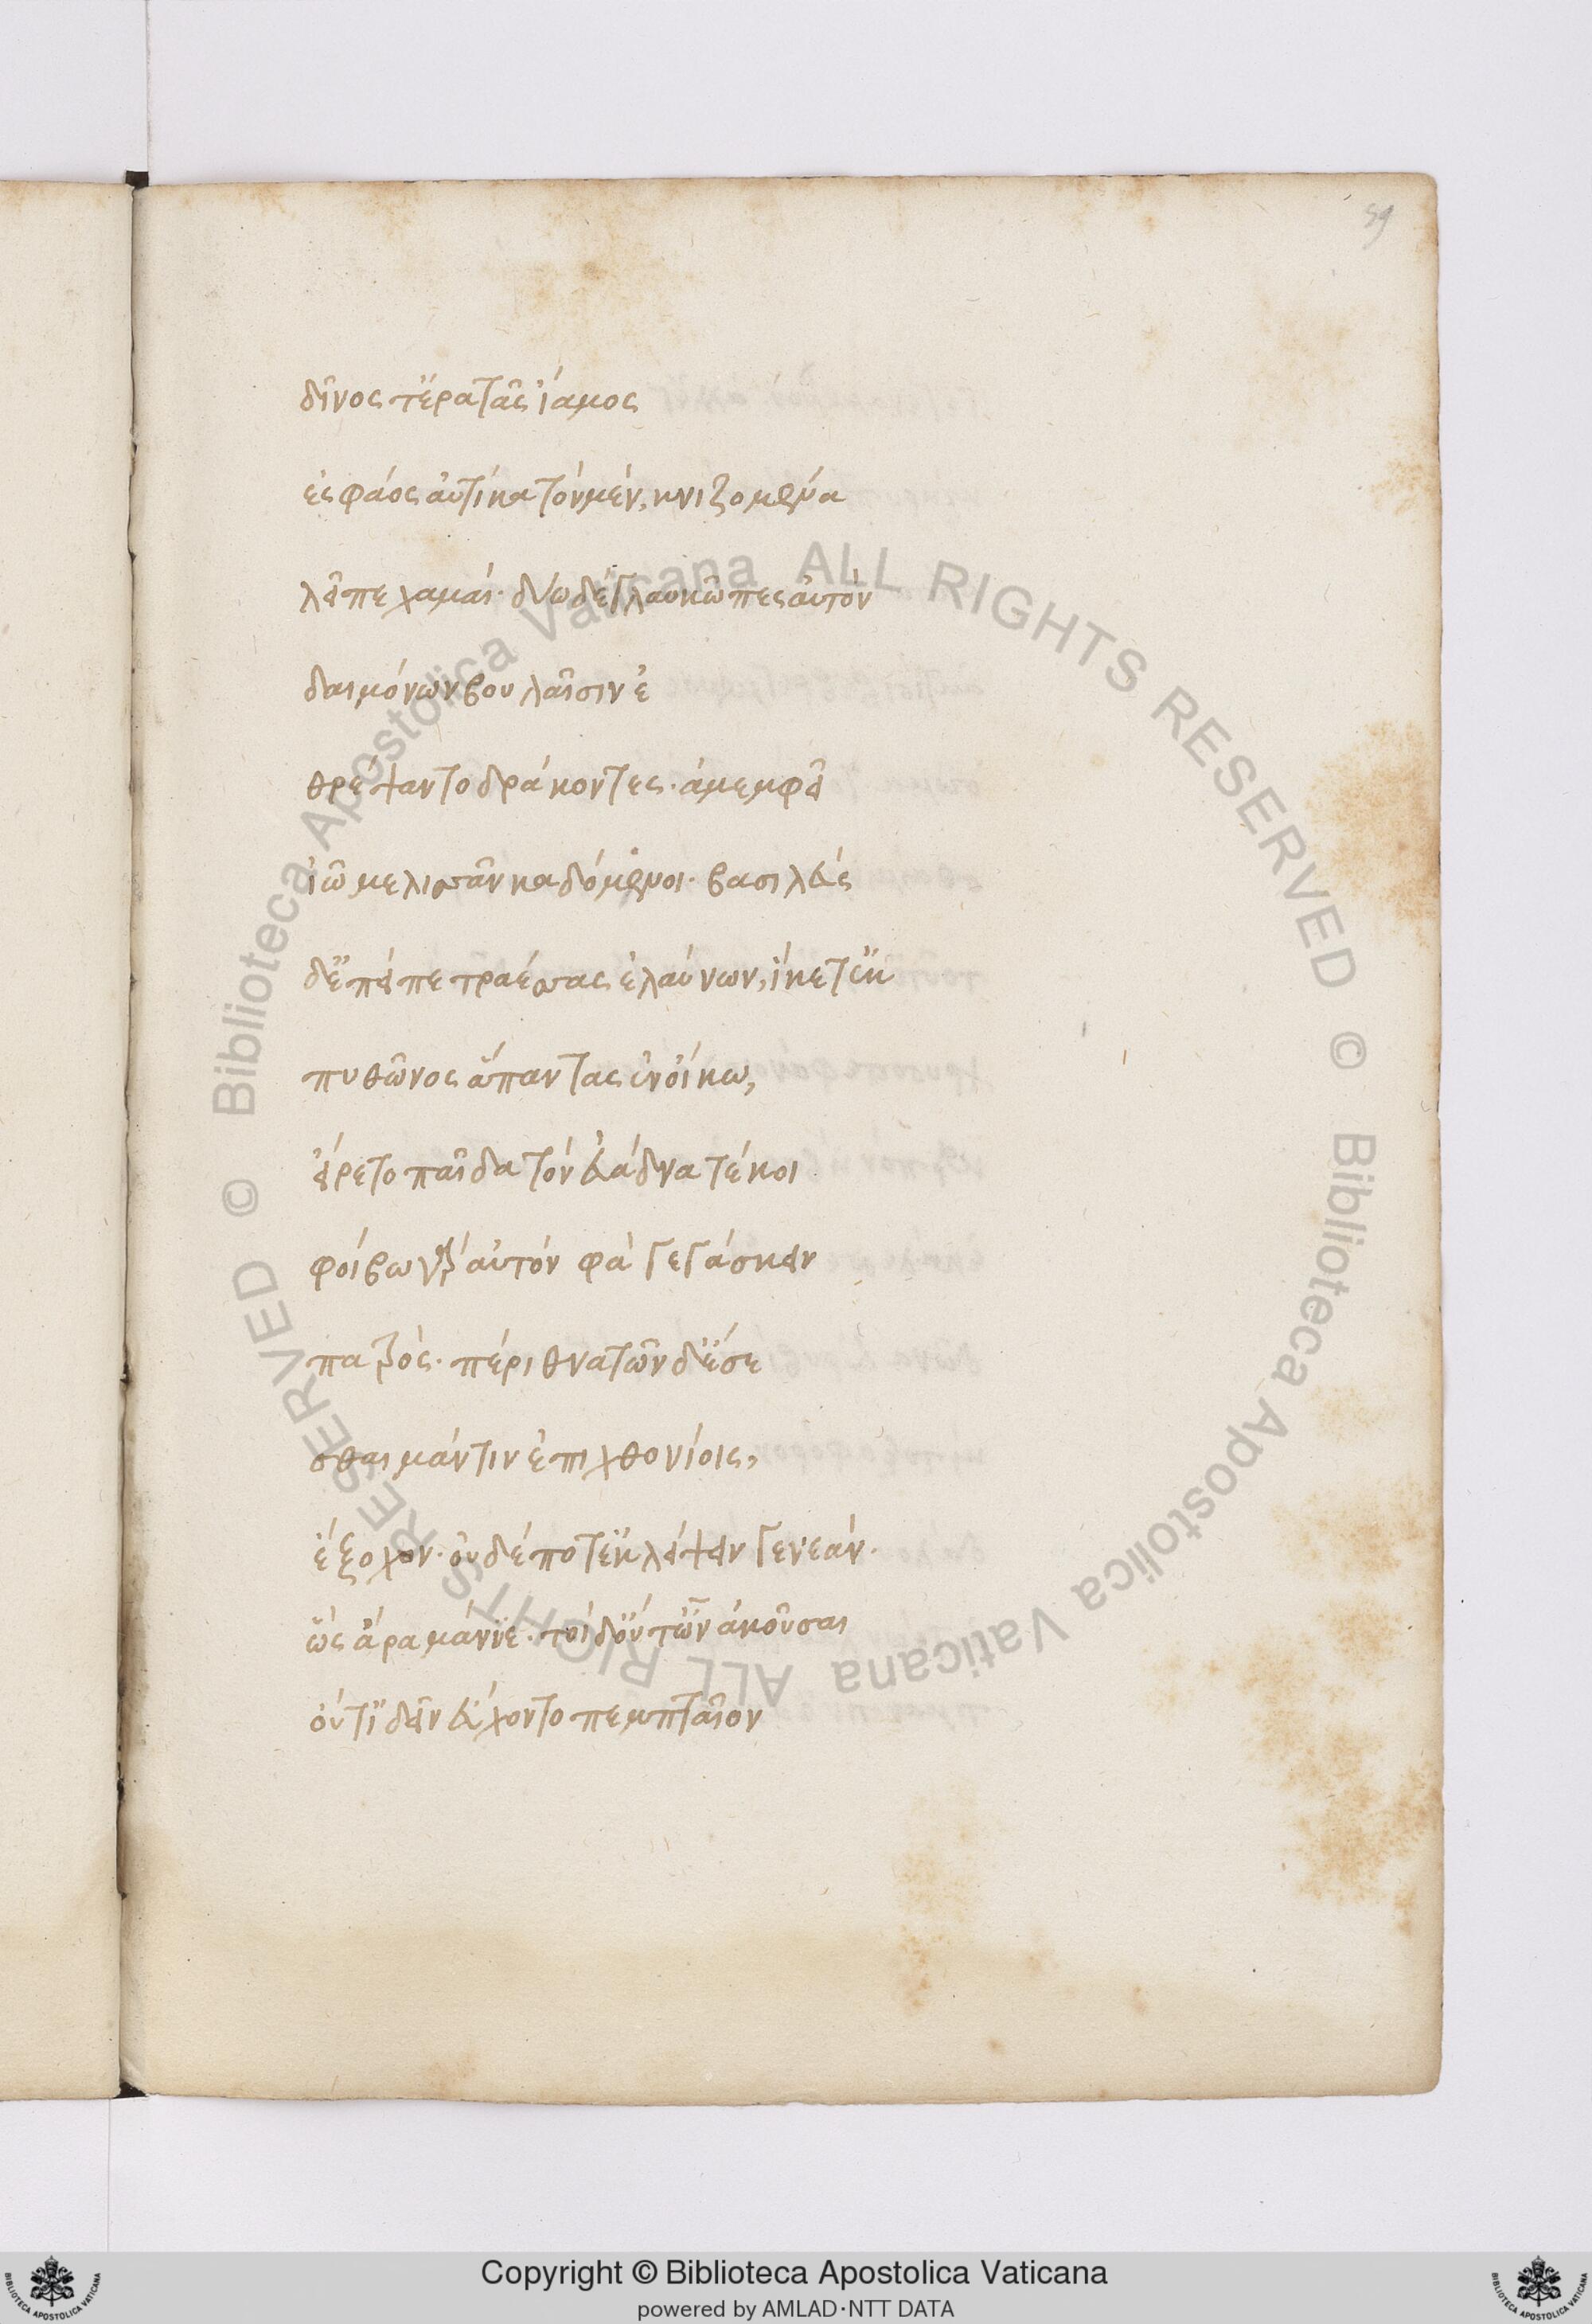 59
δῖνος τ' ἐρατᾶς ἴαμος
ἐς φάος αὐτίκα τὸν μέν, κνιζομένα
λεῖπε χαμαί· δύω δὲ γλαυκῶπες αὐτὸν
δαιμόνων βουλαῖσιν ἐ
θρέψαντο δράκοντες· ἀμεμφεῖ
ἰῶ μελισσᾶν καδόμενοι· βασιλεὺς
δ' ἐπεὶ πετραέσσας ἐλαύνων, ἵκετ' ἐκ
πυθῶνος ἅπαντας ἐν οἴκω,
εἴρετο παῖδα τὸν εὐάδνα τέκοι
φοίβω γὰρ αὐτόν φα γεγάκειν
πατρός· πέρι θνατῶν δ' ἔσε
σθαι μάντιν ἐπιχθονίοις,
ἔξοχον· οὐδέποτ' ἐκλείψειν γενεάν.
ὣς ἄρα μάννε· τοὶ δ' οὔτ' ὦν ἀκοῦσαι
οὔτ' ἰδεῖν εὔχοντο πεμπταῖον
Copyright © Biblioteca Apostolica Vaticana
powered by AMLAD·NTT DATA
© Biblioteca Apostolica Vaticana ALL RIGHTS RESERVED
© Biblioteca Apostolica Vaticana ALL RIGHTS RESERVED